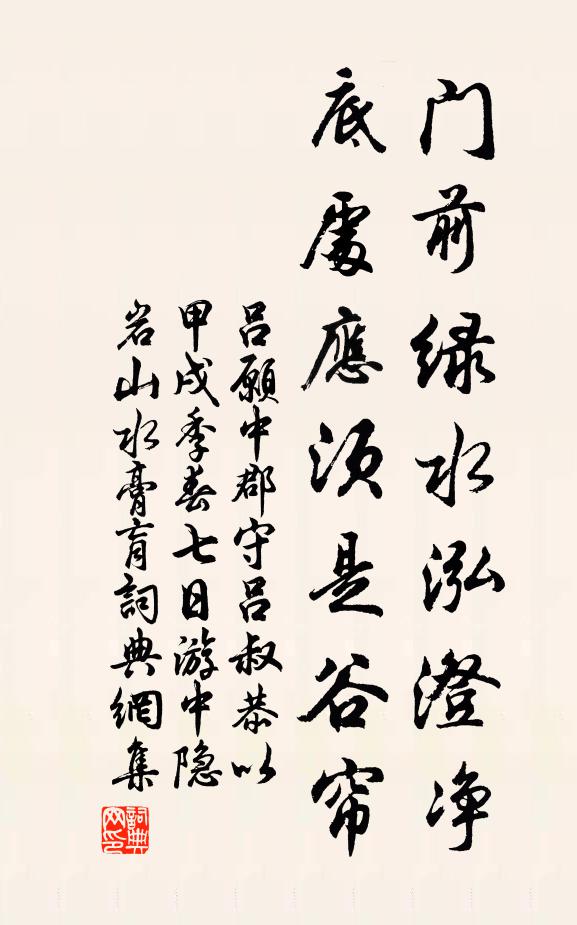 門前绿水泓澄净
底處應須是谷帘
吕願中郡守吕叔恭以
甲戌季春七日游中隐
岩山水膏肓詞典網集
詞典网印